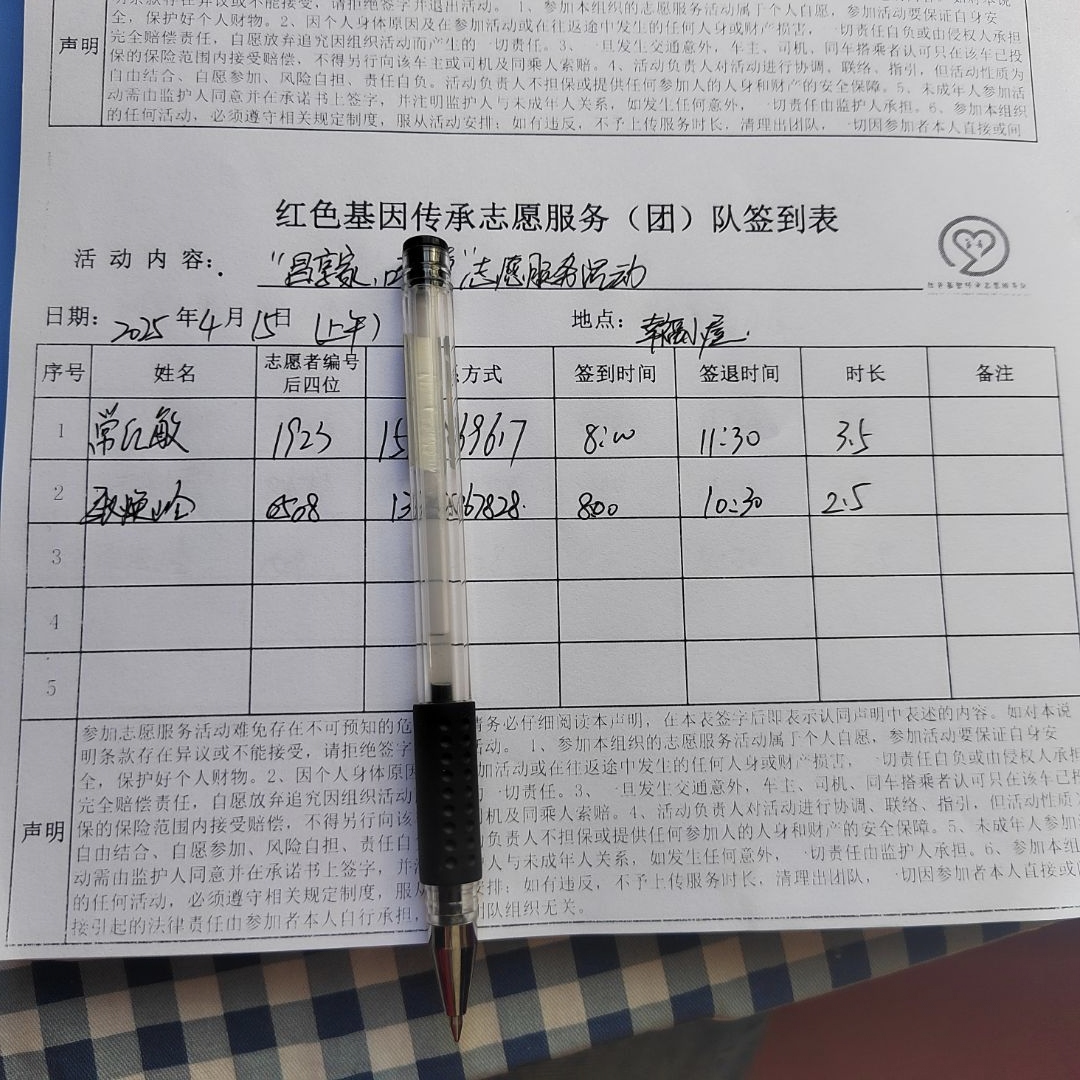 明条款存在异议或不能接受，请拒绝签字并退出活动。 1、参加本组织的志愿服务活动属于个人自愿，参加活动要保证自身安
全，保护好个人财物。2、因个人身体原因及在参加活动或在往返途中发生的任何人身或财产损害，一切责任自负或由侵权人承担
完全赔偿责任，自愿放弃追究因组织活动而产生的一切责任。3、一旦发生交通意外，车主、司机、同车搭乘者认可只在该车已投
声明
保的保险范围内接受赔偿，不得另行向该车主或司机及同乘人索赔。4、活动负责人对活动进行协调、联络、指引，但活动性质为
自由结合、自愿参加、风险自担、责任自负。活动负责人不担保或提供任何参加人的人身和财产的安全保障。5、未成年人参加活
动需由监护人同意并在承诺书上签字，并注明监护人与未成年人关系，如发生任何意外，一切责任由监护人承担。6、参加本组织
的任何活动，必须遵守相关规定制度，服从活动安排；如有违反，不予上传服务时长，清理出团队，一切因参加者本人直接或间
红色基因传承志愿服务（团）队签到表
活动内容： "昌享家 " 志愿服务活动
日期：2025年4月15日（上午） 地点：幸福小屋
序号 姓名 志愿者编号后四位 方式 签到时间 签退时间 时长 备注
1 常红敏 1923 15 69617 8:00 11:30 3.5
2 0508 13 67828 8:00 10:30 2.5
3
4
5
参加志愿服务活动难免存在不可预知的危 请务必仔细阅读本声明，在本表签字后即表示认同声明中表述的内容。如对本说
明条款存在异议或不能接受，请拒绝签字 活动。 1、参加本组织的志愿服务活动属于个人自愿，参加活动要保证自身安
全，保护好个人财物。2、因个人身体原因 加活动或在往返途中发生的任何人身或财产损害，一切责任自负或由侵权人承担
完全赔偿责任，自愿放弃追究因组织活动 一切责任。3、一旦发生交通意外，车主、司机、同车搭乘者认可只在该车已投
声明
保的保险范围内接受赔偿，不得另行向该 机及同乘人索赔。4、活动负责人对活动进行协调、联络、指引，但活动性质
自由结合、自愿参加、风险自担、责任自 负责人不担保或提供任何参加人的人身和财产的安全保障。5、未成年人参加
动需由监护人同意并在承诺书上签字，并 人与未成年人关系，如发生任何意外，一切责任由监护人承担。6、参加本组
的任何活动，必须遵守相关规定制度，服从 安排；如有违反，不予上传服务时长，清理出团队，一切因参加者本人直接或
接引起的法律责任由参加者本人自行承担， 团队组织无关。